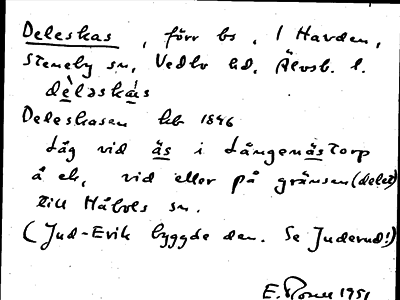 Deleskas, förr bs. i Harden,
Steneby sn, Vedbo hd, Älvsb. l.
dèləskás
Deleskasen hb 1846
Låg vid ås i Långenästorp
å ek, vid eller på gränsen (delet)
till Håbols sn.
(Jud-Erik byggde den. Se Juderud!)
1951